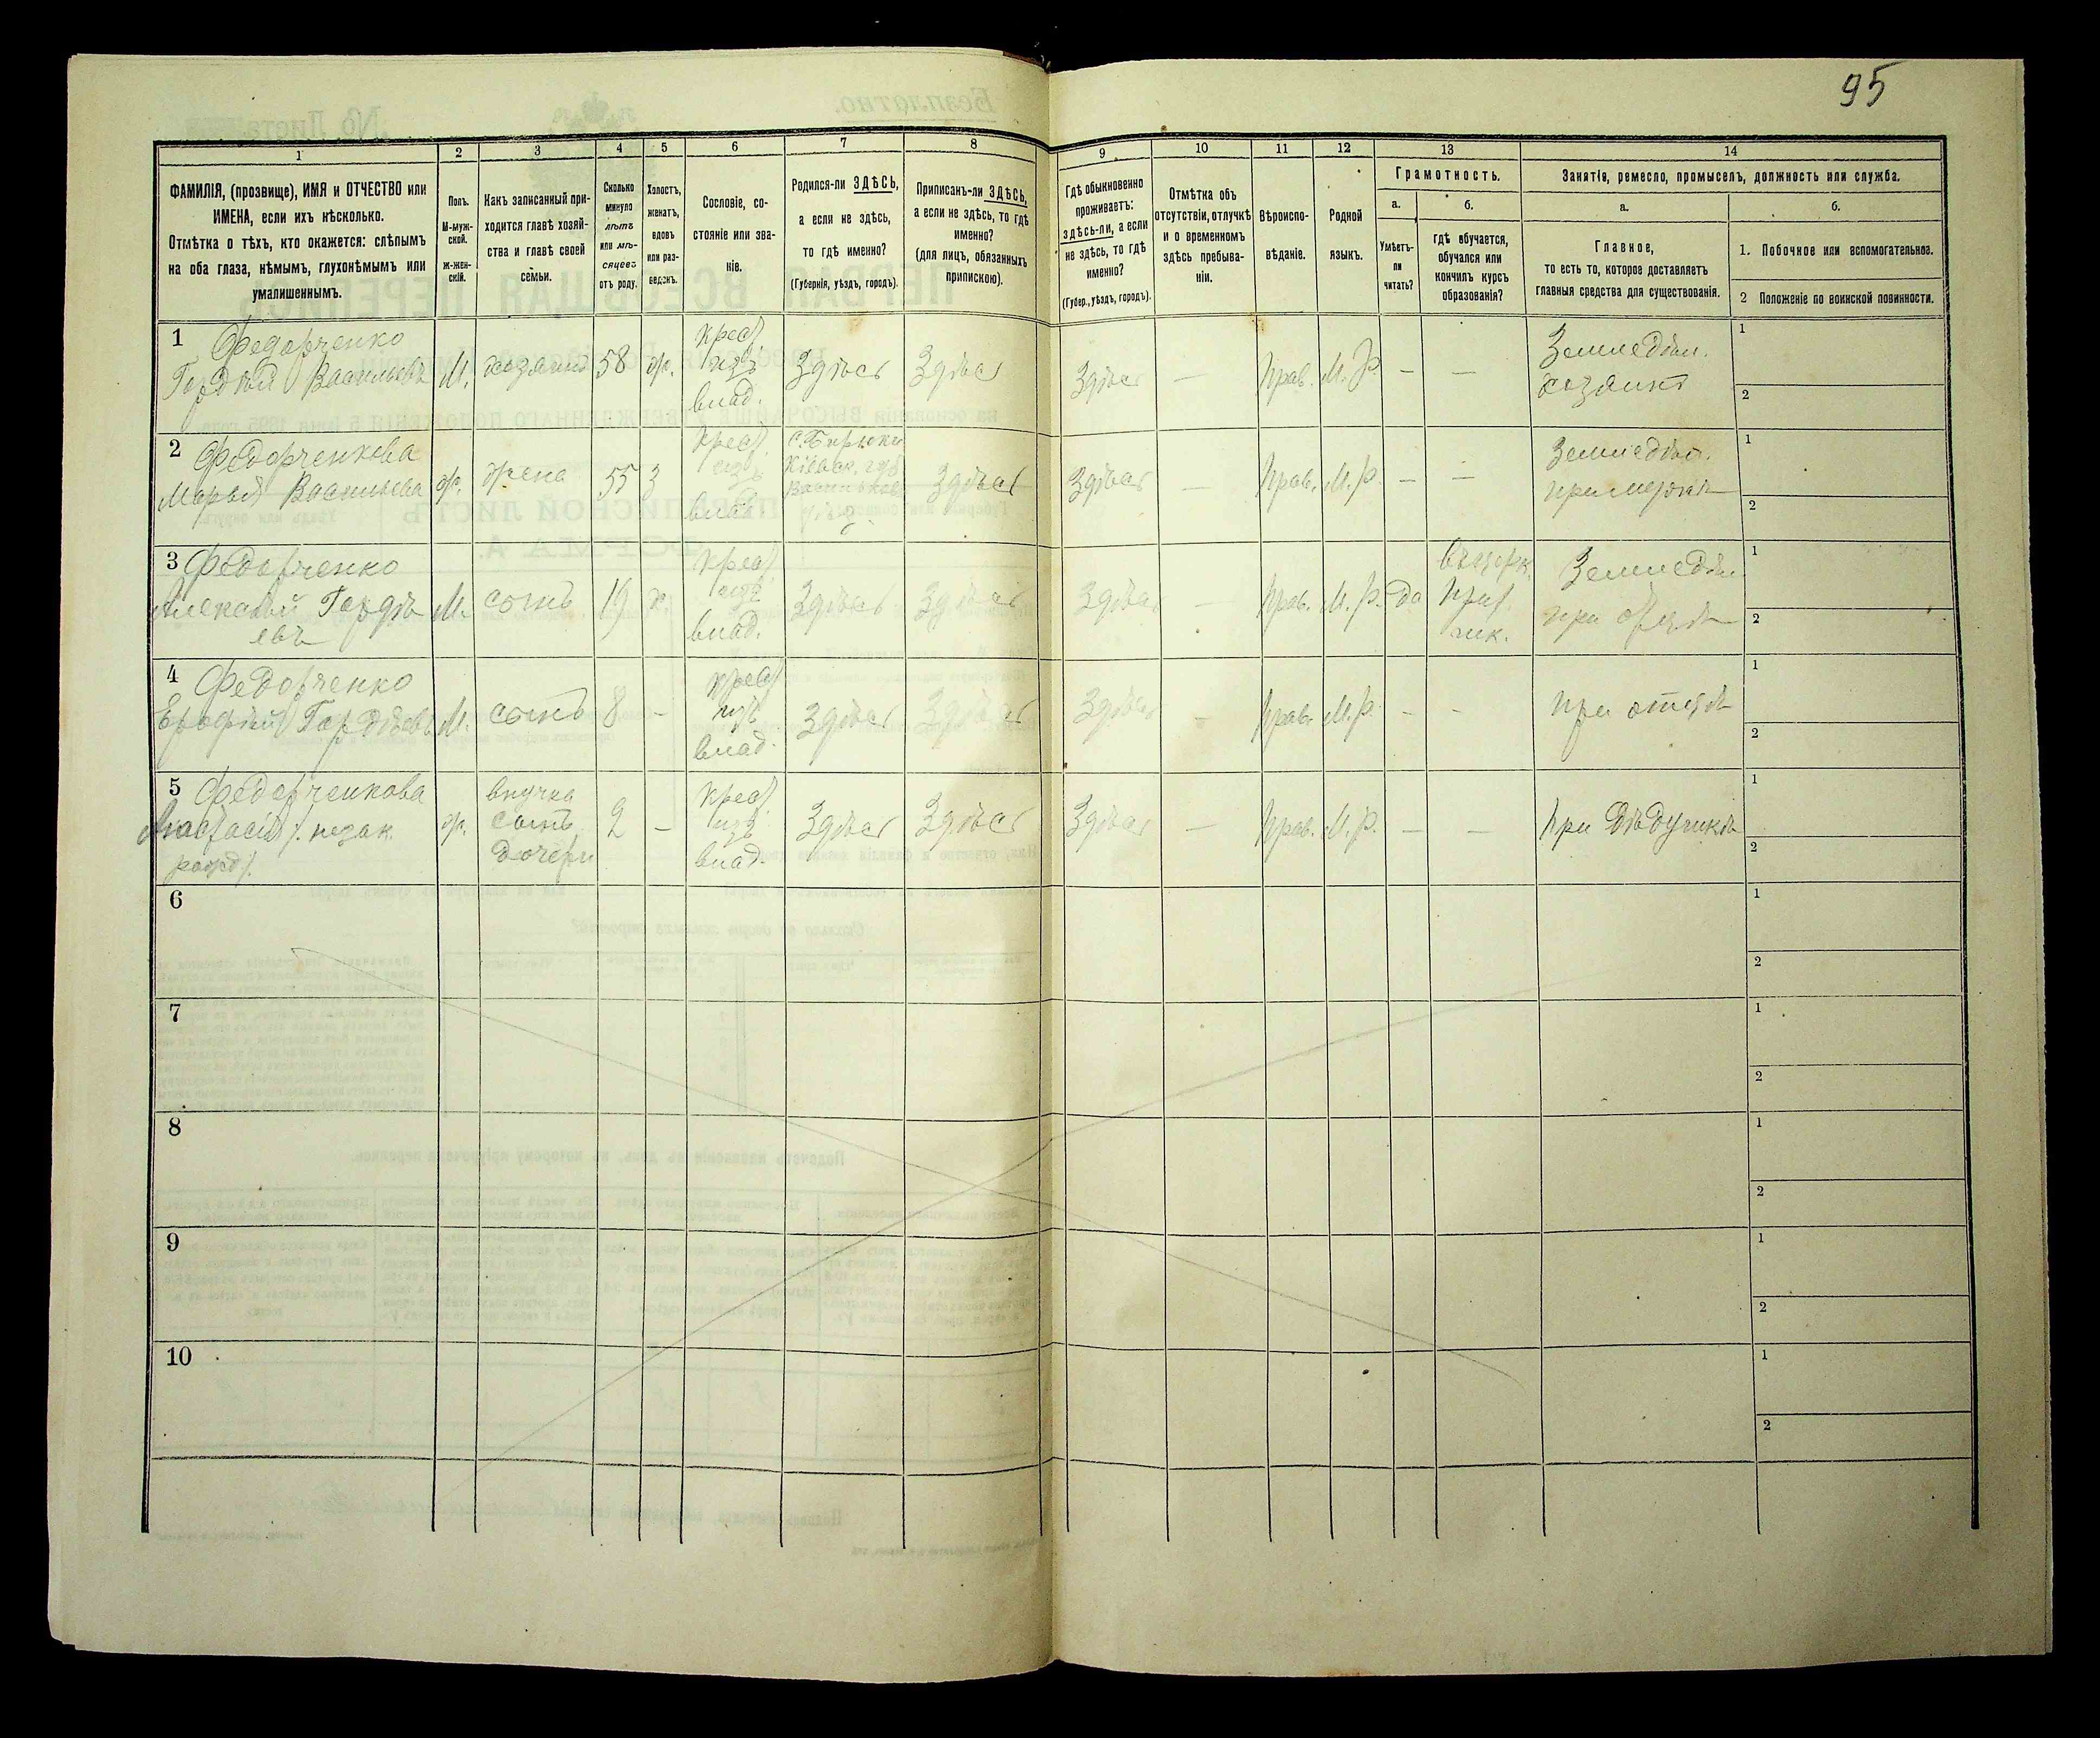 95
1 2 3 4 5 6 7 8 9 10 11 12 13 14
ФАМИЛІЯ, (прозвище), ИМЯ и ОТЧЕСТВО или
ИМЕНА, если ихъ нѣсколько.
Отмѣтка о тѣхъ, кто окажется: слѣпымъ
на оба глаза, нѣмымъ, глухонѣмымъ или
умалишеннымъ.
Полъ.
М-муж-
ской.
Ж-жен-
скій.
Какъ записанный при-
ходится главѣ хозяй-
ства и главѣ своей
семьи.
Сколько
минуло
лѣтъ
или мѣ-
сяцевъ
отъ роду.
Холостъ,
женатъ,
вдовъ
или раз-
веденъ.
Сословіе, со-
стояніе или зва-
ніе.
Родился-ли ЗДѢСЬ,
а если не здѣсь,
то гдѣ именно?
(Губернія, уѣздъ, городъ).
Приписанъ-ли ЗДѢСЬ,
а если не здѣсь, то гдѣ
именно?
(для лицъ, обязанныхъ
припискою).
Гдѣ обыкновенно
проживаетъ:
здѣсь-ли, а если
не здѣсь, то гдѣ
именно?
(Губер., уѣздъ, городъ).
Отмѣтка объ
отсутствіи, отлучкѣ
и о временномъ
здѣсь пребыва-
ніи.
Вѣроиспо-
вѣданіе.
Родной
языкъ.
Грамотность.
а.
Умѣетъ-
ли
читать?
б.
гдѣ обучается,
обучался или
кончилъ курсъ
образованія?
Занятіе, ремесло, промыселъ, должность или служба.
а.
Главное,
то есть то, которое доставляетъ
главныя средства для существованія.
б.
1. Побочное или вспомогательное.
2 Положеніе по воинской повинности.
1 Федорченко
Гордѣй Васильевъ
М.
хозяинъ
58
ж.
крест.
изъ
влад.
Здѣсь
Здѣсь
Здѣсь
—
прав.
М. Р.
—
—
Земледѣл.
хозяинъ
1
2
2 Федорченкова
Марья Васильева
ж.
жена
55
З
крест.
изъ
влад.
с. Бирюки
Кіевск. губ
Васильков.
Здѣсь
Здѣсь
—
Прав.
М. Р.
—
—
Земледѣл.
при мужѣ
1
2
3 Федорченко
Алексѣй Гордѣ
евъ
М.
сынъ
19
х.
крест.
изъ
влад.
Здѣсь
Здѣсь
Здѣсь
—
прав.
М. Р.
да
въ церк.
прих.
шк.
Земледѣл.
при отцѣ
1
2
4 Федорченко
Ерофѣй Гордѣевъ
М.
сынъ
8
—
крест.
изъ
влад.
Здѣсь
Здѣсь
Здѣсь
—
прав.
М. Р.
—
—
при отцѣ
1
2
5 Федорченкова
Анастасія /. незак.
рожд/.
ж.
внучка
дочери
2
—
крест.
изъ
влад.
Здѣсь
Здѣсь
Здѣсь
—
прав.
М. Р.
—
—
при дѣдушкѣ
1
2
6
1
2
7
1
2
8
1
2
9
1
2
10
1
2